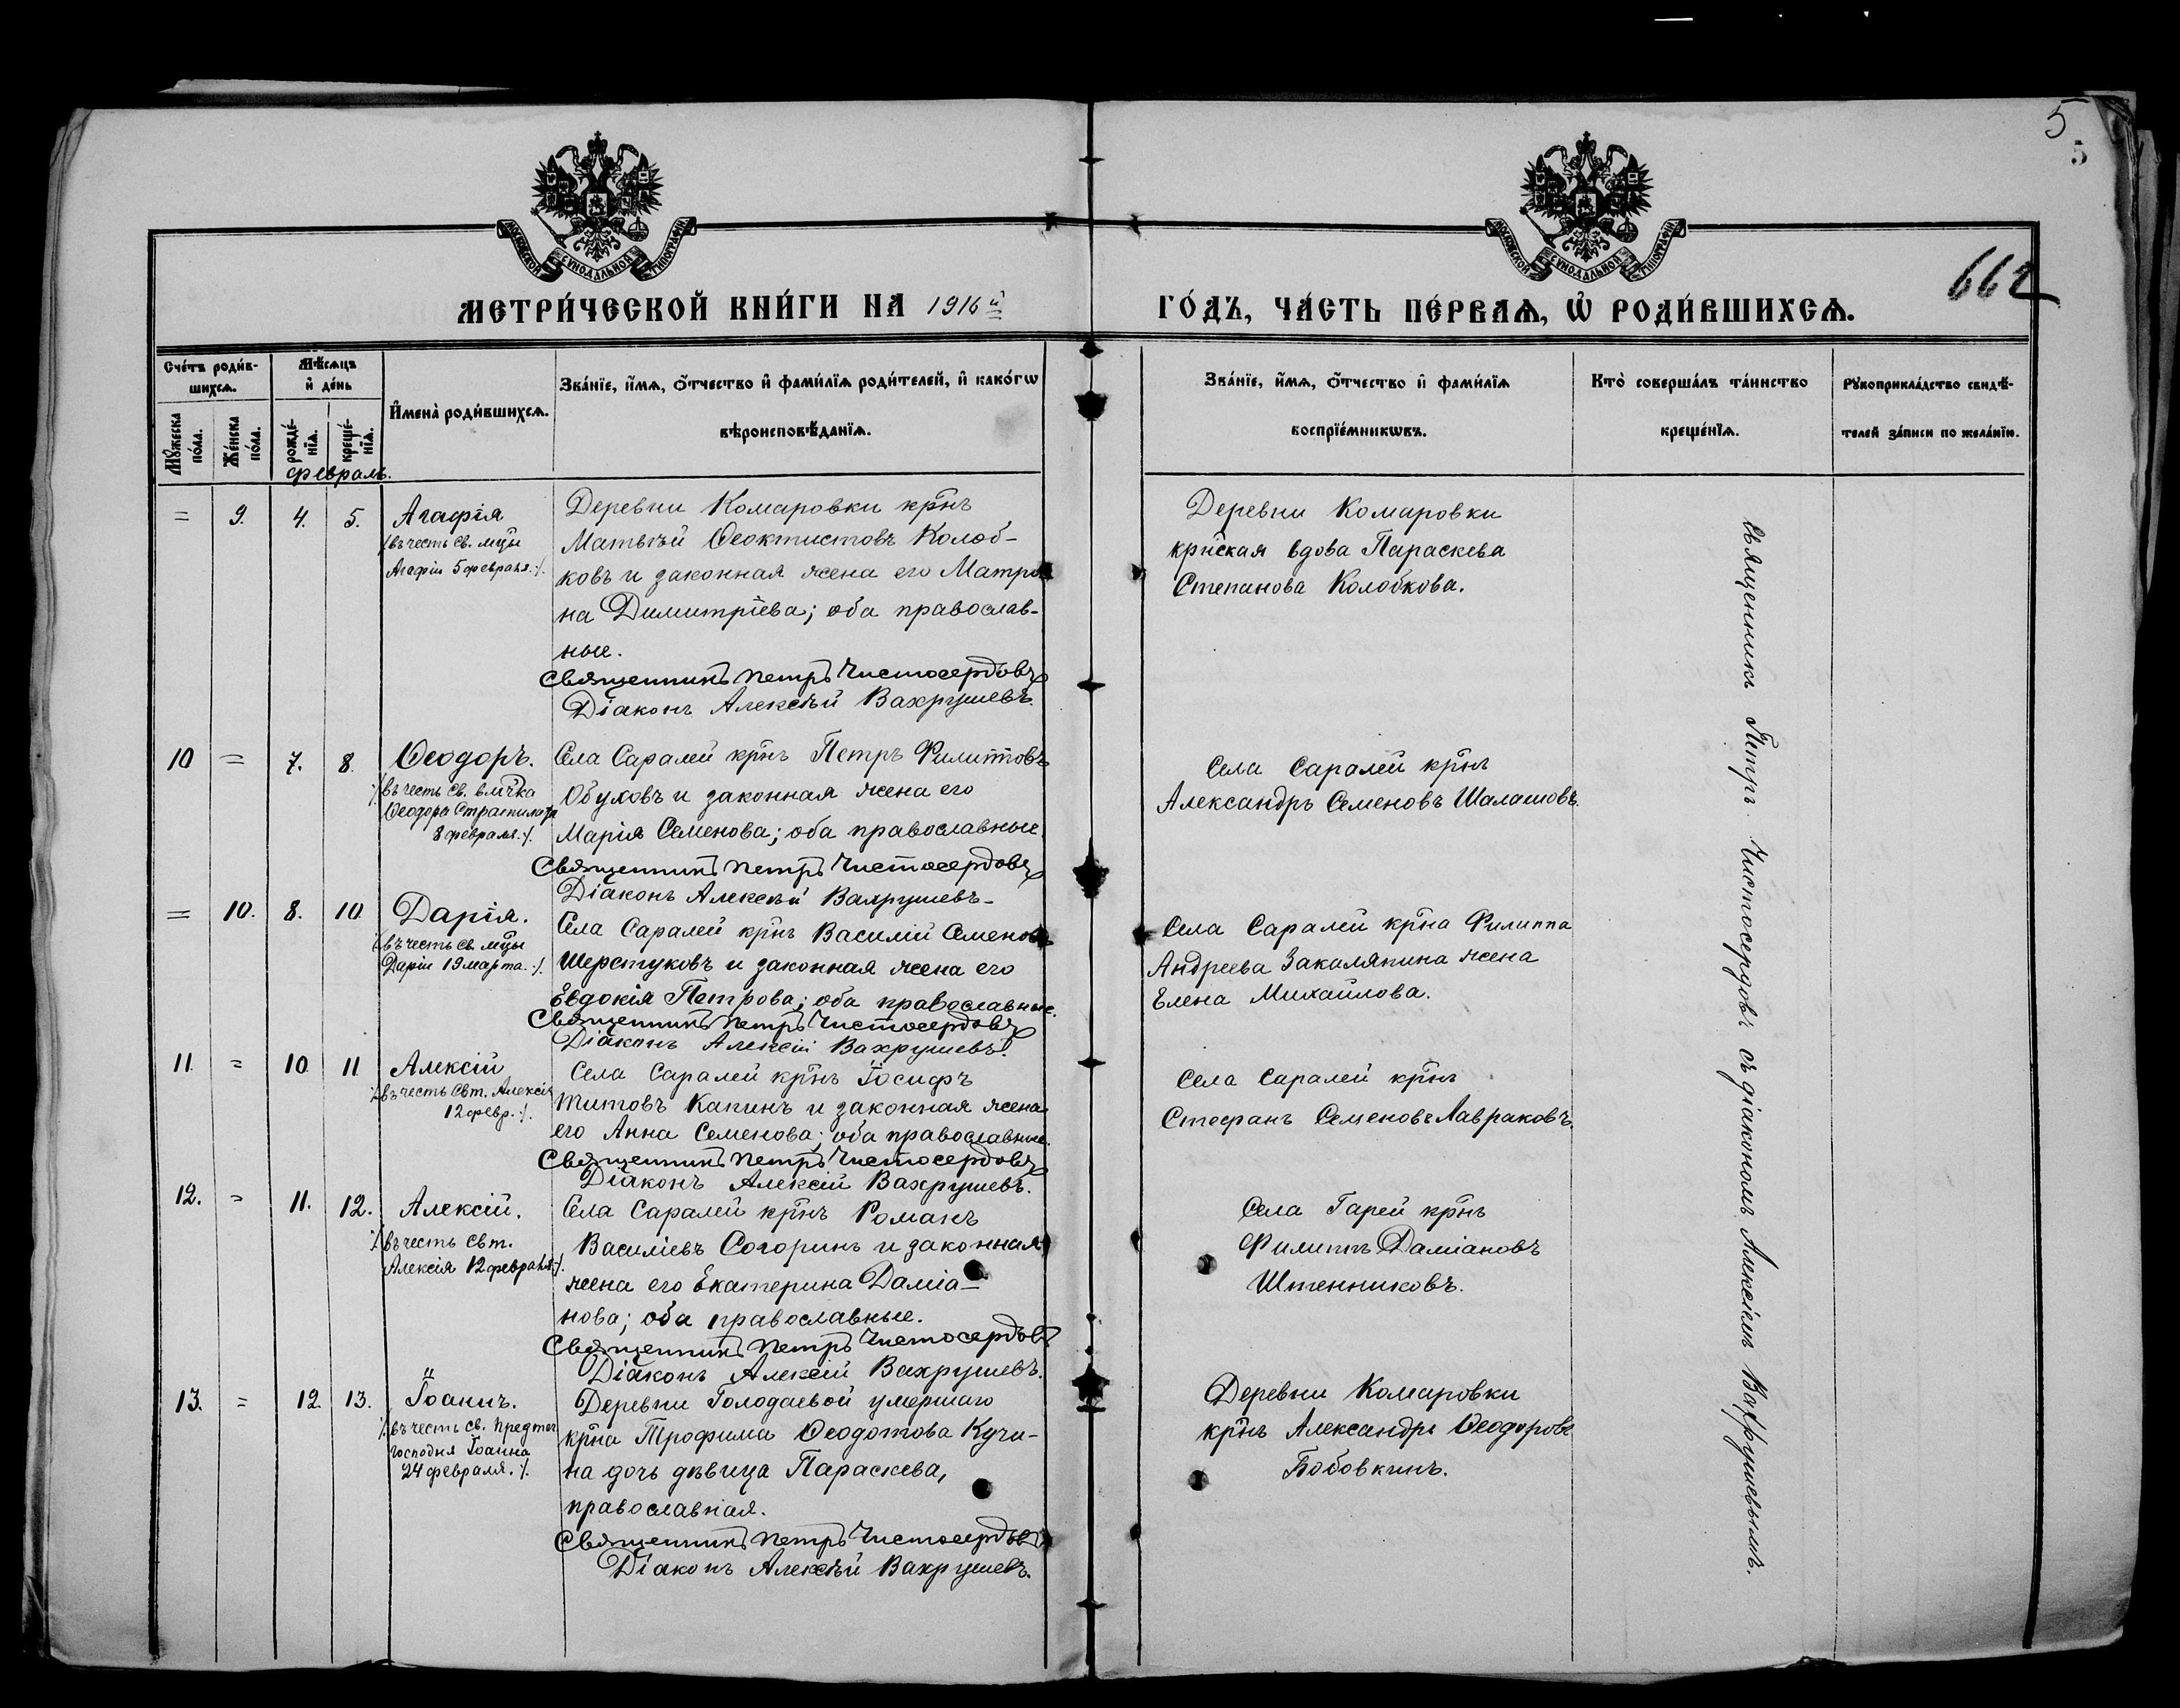 5
5
МОСКОВСКОЙ СУНОДАЛЬНОЙ ТИПОГРАФІИ
МОСКОВСКОЙ СУНОДАЛЬНОЙ ТИПОГРАФІИ
662
МЕТРИ́ЧЕСКОЙ КНИ́ГИ НА 1916й
ГО́ДЪ, ЧА́СТЬ ПЕ́РВАѦ, Ѡ҆ РОДИ́ВШИХСѦ.
Сче́тъ роди́в-
шихсѧ.
Мꙋ́жеска
по́ла.
Же́нска
по́ла.
Мѣ́сяцъ
и҆ де́нь
рожде́-
нїѧ.
креще́-
нїѧ.
И҆мена̀ роди́вшихсѧ.
Зва́нїе, и҆́мѧ, ѻ҆́тчество и҆ фами́лїѧ роди́телей, и҆ како́гѡ
вѣроисповѣ́данїѧ.
Зва́нїе, и҆́мѧ, ѻ҆́тчество и҆ фами́лїѧ
воспрїе́мникѡвъ.
Кто̀ соверша́лъ та́инство
креще́нїѧ.
Рꙋкоприкла́дство свидѣ́-
телей за́писи по жела́нїю.
февраль.
= 9. 4. 5. Агафія
/въ честь св. мцы
Агафіи 5 февраля./.
Деревни Комаровки крнъ
Матвѣй Ѳеоктистовъ Колоб-
ковъ и законная жена его Матро
на Димитріева; оба православ-
ные.
Священникъ Петръ Чистосердовъ
Діаконъ Алексѣй Вахрушевъ.
Деревни Комаровки
крнская вдова Параскева
Степанова Колобкова.
10 = 7. 8. Ѳеодоръ.
/.въ честь св. влмчка
Ѳеодора Стратилата
8 февраля./.
Села Саралей крнъ Петръ Филипповъ
Обуховъ и законная жена его
Марія Семенова; оба православные.
Священникъ Петръ Чистосердовъ
Діаконъ Алексѣй Вахрушевъ
Села Саралей крнъ
Александръ Семеновъ Шалашовъ.
= 10. 8. 10 Дарія.
/.въ честь св. мцы
Даріи 19 марта./.
Села Саралей крнъ Василій Семеновъ
Шерстуковъ и законная жена его
Евдокія Петрова; оба православные.
Священникъ Петръ Чистосердовъ
Діаконъ Алексій Вахрушевъ.
Села Саралей крна Филиппа
Андреева Закаляпина жена
Елена Михайлова.
11 = 10 11 Алексій
/.въ честь Свт. Алексія
12 февр./.
Села Саралей крнъ Іосифъ
Титовъ Капинъ и законная жена
его Анна Семенова; оба православные.
Священникъ Петръ Чистосердовъ
Діаконъ Алексій Вахрушевъ.
Села Саралей крнъ
Стефанъ Семеновъ Лавраковъ.
12. = 11. 12. Алексій.
/.въ честь Свт.
Алексія 12 февраля./.
Села Саралей крнъ Романъ
Василіевъ Согоринъ и законная
жена его Екатерина Даміа-
нова; оба православные.
Священникъ Петръ Чистосердовъ
Діаконъ Алексій Вахрушевъ.
Села Гарей крнъ
Филиппъ Даміановъ
Штенниковъ.
13. = 12. 13. Іоаннъ.
/.въ честь св. Предтеч
Господня Іоанна
24 февраля./.
Деревни Голодаевой умершаго
крна Трофима Ѳеодотова Кучи-
на дочь дѣвица Параскева,
православная.
Священникъ Петръ Чистосердовъ
Діаконъ Алексѣй Вахрушевъ.
Деревни Комаровки
крнъ Александръ Ѳеодоровъ
Бобовкинъ.
Священникъ Петръ Чистосердовъ съ діакономъ Алексіемъ Вахрушевымъ.